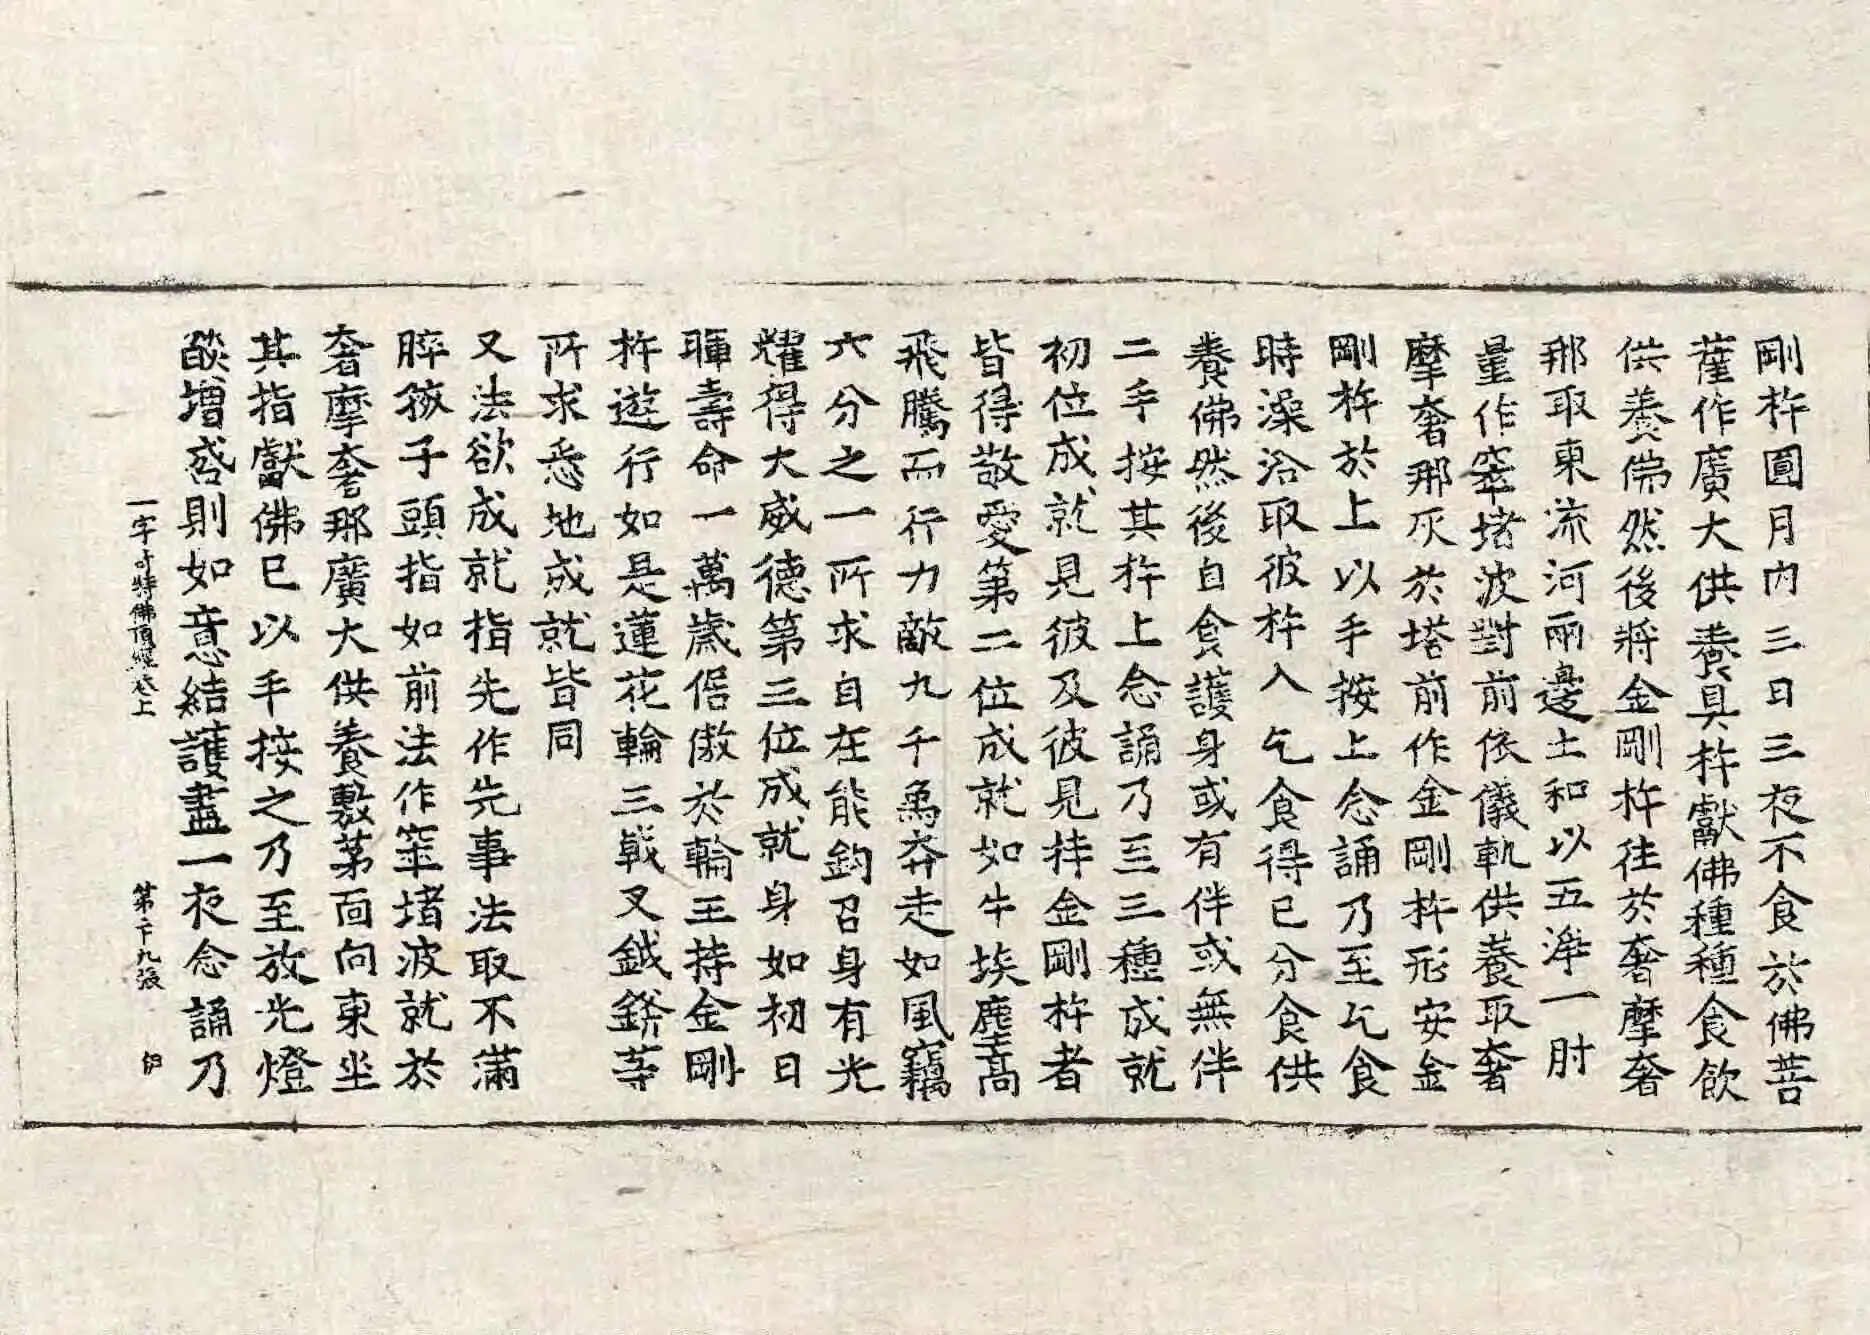 剛杵圓月內三日三夜不食於佛菩
薩作廣大供養具杵獻佛種種食飲
供養佛然後將金剛杵往於奢摩奢
那取東流河兩邊土和以五淨一肘
量作窣堵波對前依儀軌供養取奢
摩奢那灰於塔前作金剛杵形安金
剛杵於上以手按上念誦乃至乞食
時澡浴取彼杵入乞食得已分食供
養佛然後自食護身或有伴或無伴
二手按其杵上念誦乃至三種成就
初位成就見彼及彼見持金剛杵者
皆得敬愛第二位成就如牛埃塵高
飛騰而行力敵九千為奔走如風竊
六分之一所求自在能鈎召身有光
耀得大威德第三位成就身如初日
暉壽命一萬歲倨傲於輪王持金剛
杵遊行如是蓮花輪三戟叉鉞鎊等
所求悉地成就皆同
又法欲成就指先作先事法取不滿
脺筱子頭指如前法作窣堵波就於
奢摩奢那廣大供養敷茅面向東坐
其指獻佛已以手接之乃至放光燈
燄增盛則如意結護晝一夜念誦乃
一字奇特佛頂經卷上 第二十九張 伊